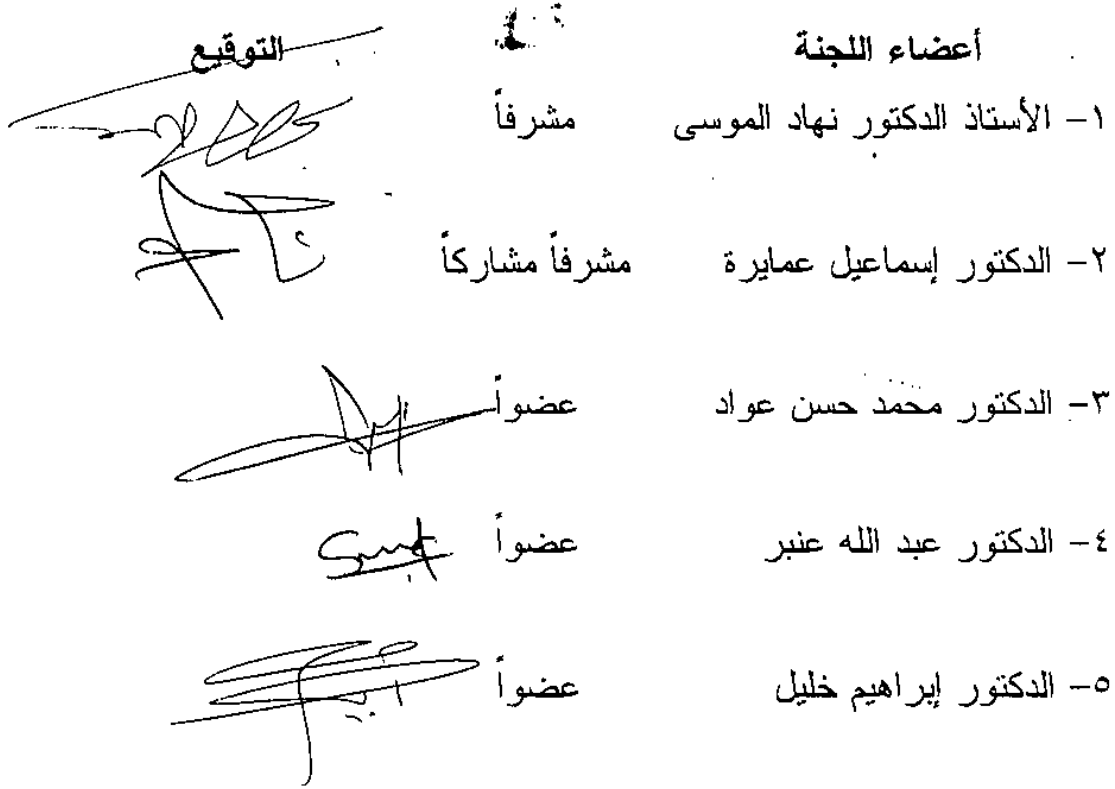 أعضاء اللجنة التوقيع
١- الأستاذ الدكتور نهاد الموسى مشرفاً
٢- الدكتور إسماعيل عمايرة مشرفاً مشاركاً
٣- الدكتور محمد حسن عواد عضواً
٤- الدكتور عبد الله عنبر عضواً
٥- الدكتور إبراهيم خليل عضواً